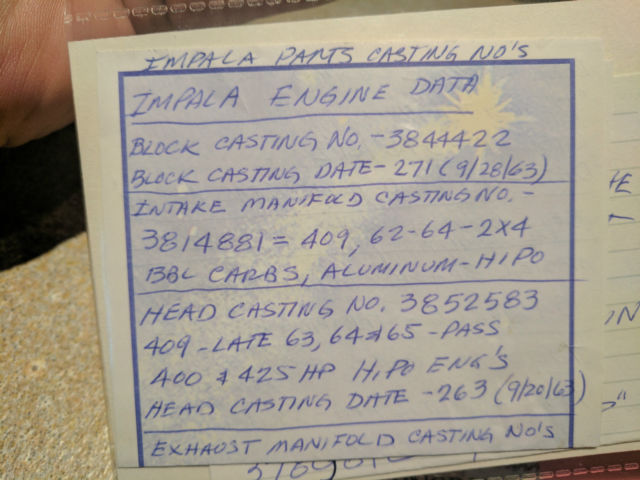 IMPALA PARTS CASTING NO'S
IMPALA ENGINE DATA
BLOCK CASTING NO. - 3844422
BLOCK CASTING DATE - 271 (9/28/63)
INTAKE MANIFOLD CASTING NO. -
3814881 = 409, 62-64-2X4
BBL CARBS, ALUMINUM-HIPO
HEAD CASTING NO. 3852583
409 - LATE 63, 64 & 65 - PASS
400 & 425 HP HIPO ENG'S
HEAD CASTING DATE - 263 (9/20/63)
EXHAUST MANIFOLD CASTING NO'S